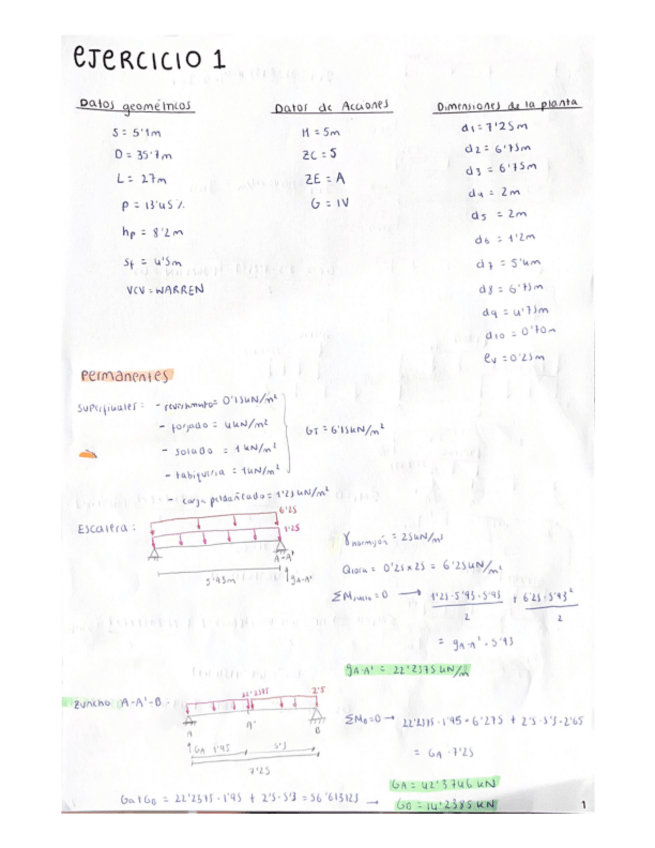 EJERCICIO 1
Datos geométricos
S = 5'1m
D = 35'7m
L = 27m
P = 13'45%
hp = 8'2m
Sf = 4'5m
VCV = WARREN
Datos de Acciones
H = 5m
ZC = 5
ZE = A
G = IV
Dimensiones de la planta
d1 = 7'25m
d2 = 6'75m
d3 = 6'75m
d4 = 2m
d5 = 2m
d6 = 1'2m
d7 = 5'4m
d8 = 6'75m
d9 = 4'75m
d10 = 0'70m
ev = 0'25m
Permanentes
Superficiales: - revestimiento = 0'15kN/m²
- forjado = 4kN/m²
- solado = 1kN/m²
- tabiquería = 1kN/m²
GT = 6'15kN/m²
- carga peldañeado = 1'25kN/m²
Escalera:
6'25
1'25
A-A'
5'93m
gA-A'
γhormigón = 25kN/m³
Qlosa = 0'25 x 25 = 6'25kN/m²
= 0 → 1'25·5'93·5'93/2 + 6'25·5'93²/2
= gA-A'·5'93
gA-A' = 22'2375 kN/m
Zuncho A-A'-B
22'2375
2'5
A
A'
B
GA 1'95
5'3
7'25
ΣMB=0 → 22'2375·1'95·6'275 + 2'5·5'3·2'65
= GA·7'25
GA = 42'3746 kN
GA+GB = 22'2375·1'95 + 2'5·5'3 = 56'613125 → GB = 14'2385 kN
1